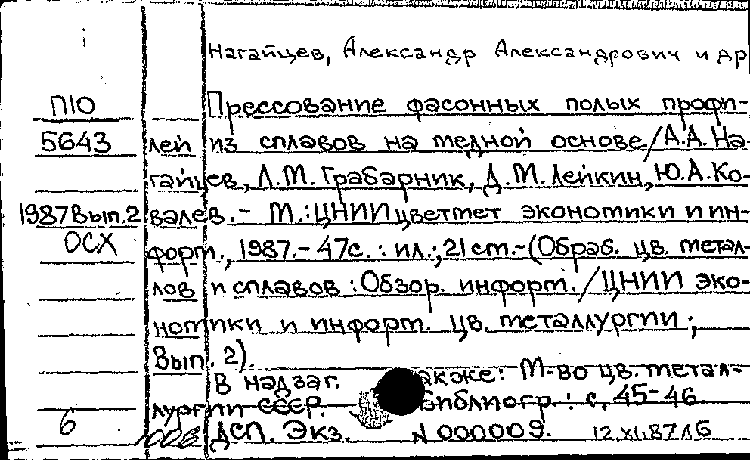 Нагайцев, Александр Александрович и др
П10
Прессование фасонных полых профи-
5643 лей из сплавов на медной основе/А.А.На-
гайцев, Л.М.Грабарник, Д.М.Лейкин, Ю.А.Ко-
1987 Вып.2 валев.- М.:ЦНИИцветмет экономики и ин-
ОСХ форм., 1987.- 47с. : ил.; 21 см.-(Обраб. цв. метал-
лов и сплавов : Обзор. информ./ЦНИИ эко-
номики и информ. цв. металлургии;
Вып. 2).
В надзаг. также: М-во цв. метал-
лургии СССР. Библиогр.: с. 45-46.
6 ДСП. Экз. N 000009. 12.XI.87 ЛБ